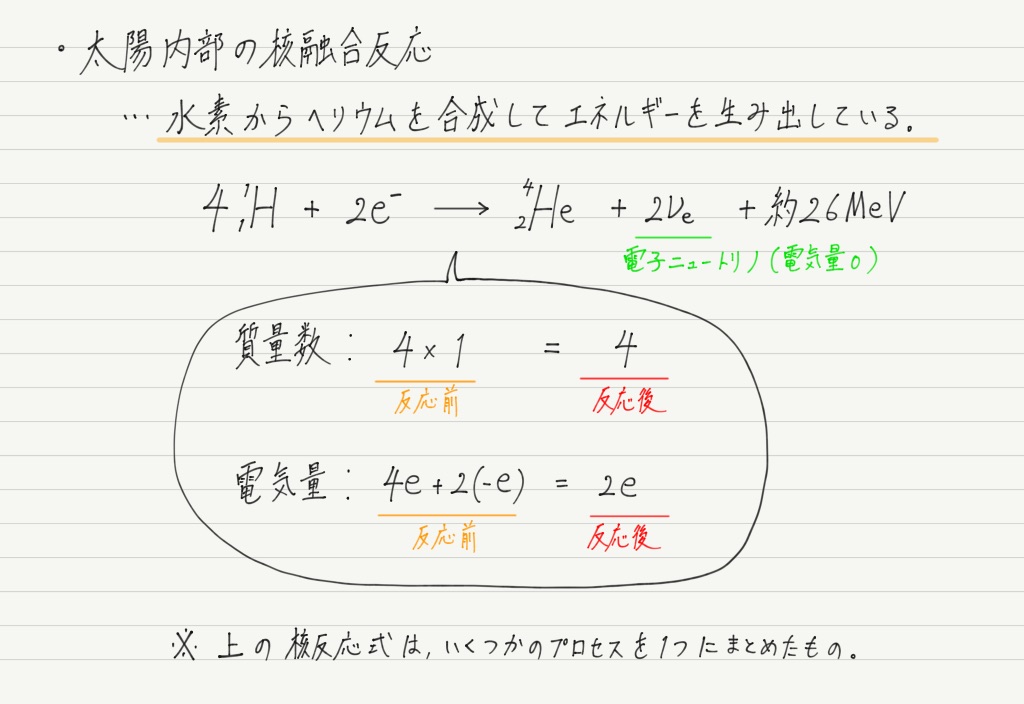 ・太陽内部の核融合反応
… 水素からヘリウムを合成してエネルギーを生み出している。
4 ¹₁H + 2e⁻ ⟶ ⁴₂He + 2νₑ + 約26MeV
電子ニュートリノ(電気量0)
質量数: 4×1 = 4
反応前 反応後
電気量: 4e+2(-e) = 2e
反応前 反応後
※ 上の核反応式は,いくつかのプロセスを1つにまとめたもの。